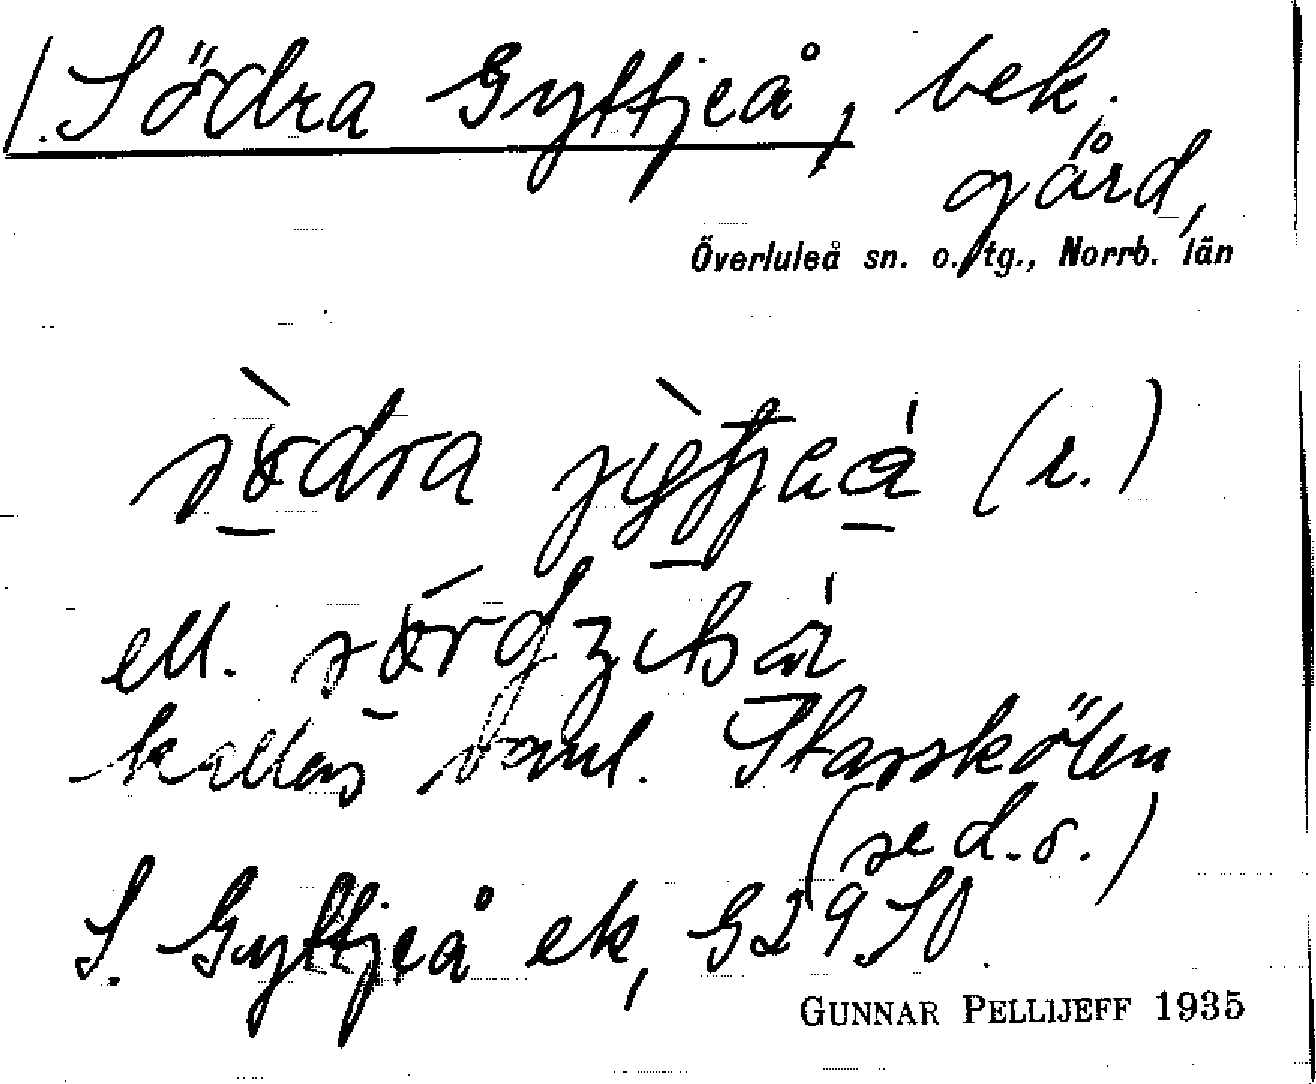 Södra Gyttjeå, bek.
gård,
Överluleå sn. o. tg., Norrb. län
södra jytjeå (r.)
ell.
kallas vanl. Starrkölen
(se d.o.)
S. Gyttjeå ek, G29 SO
GUNNAR PELLIJEFF 1935